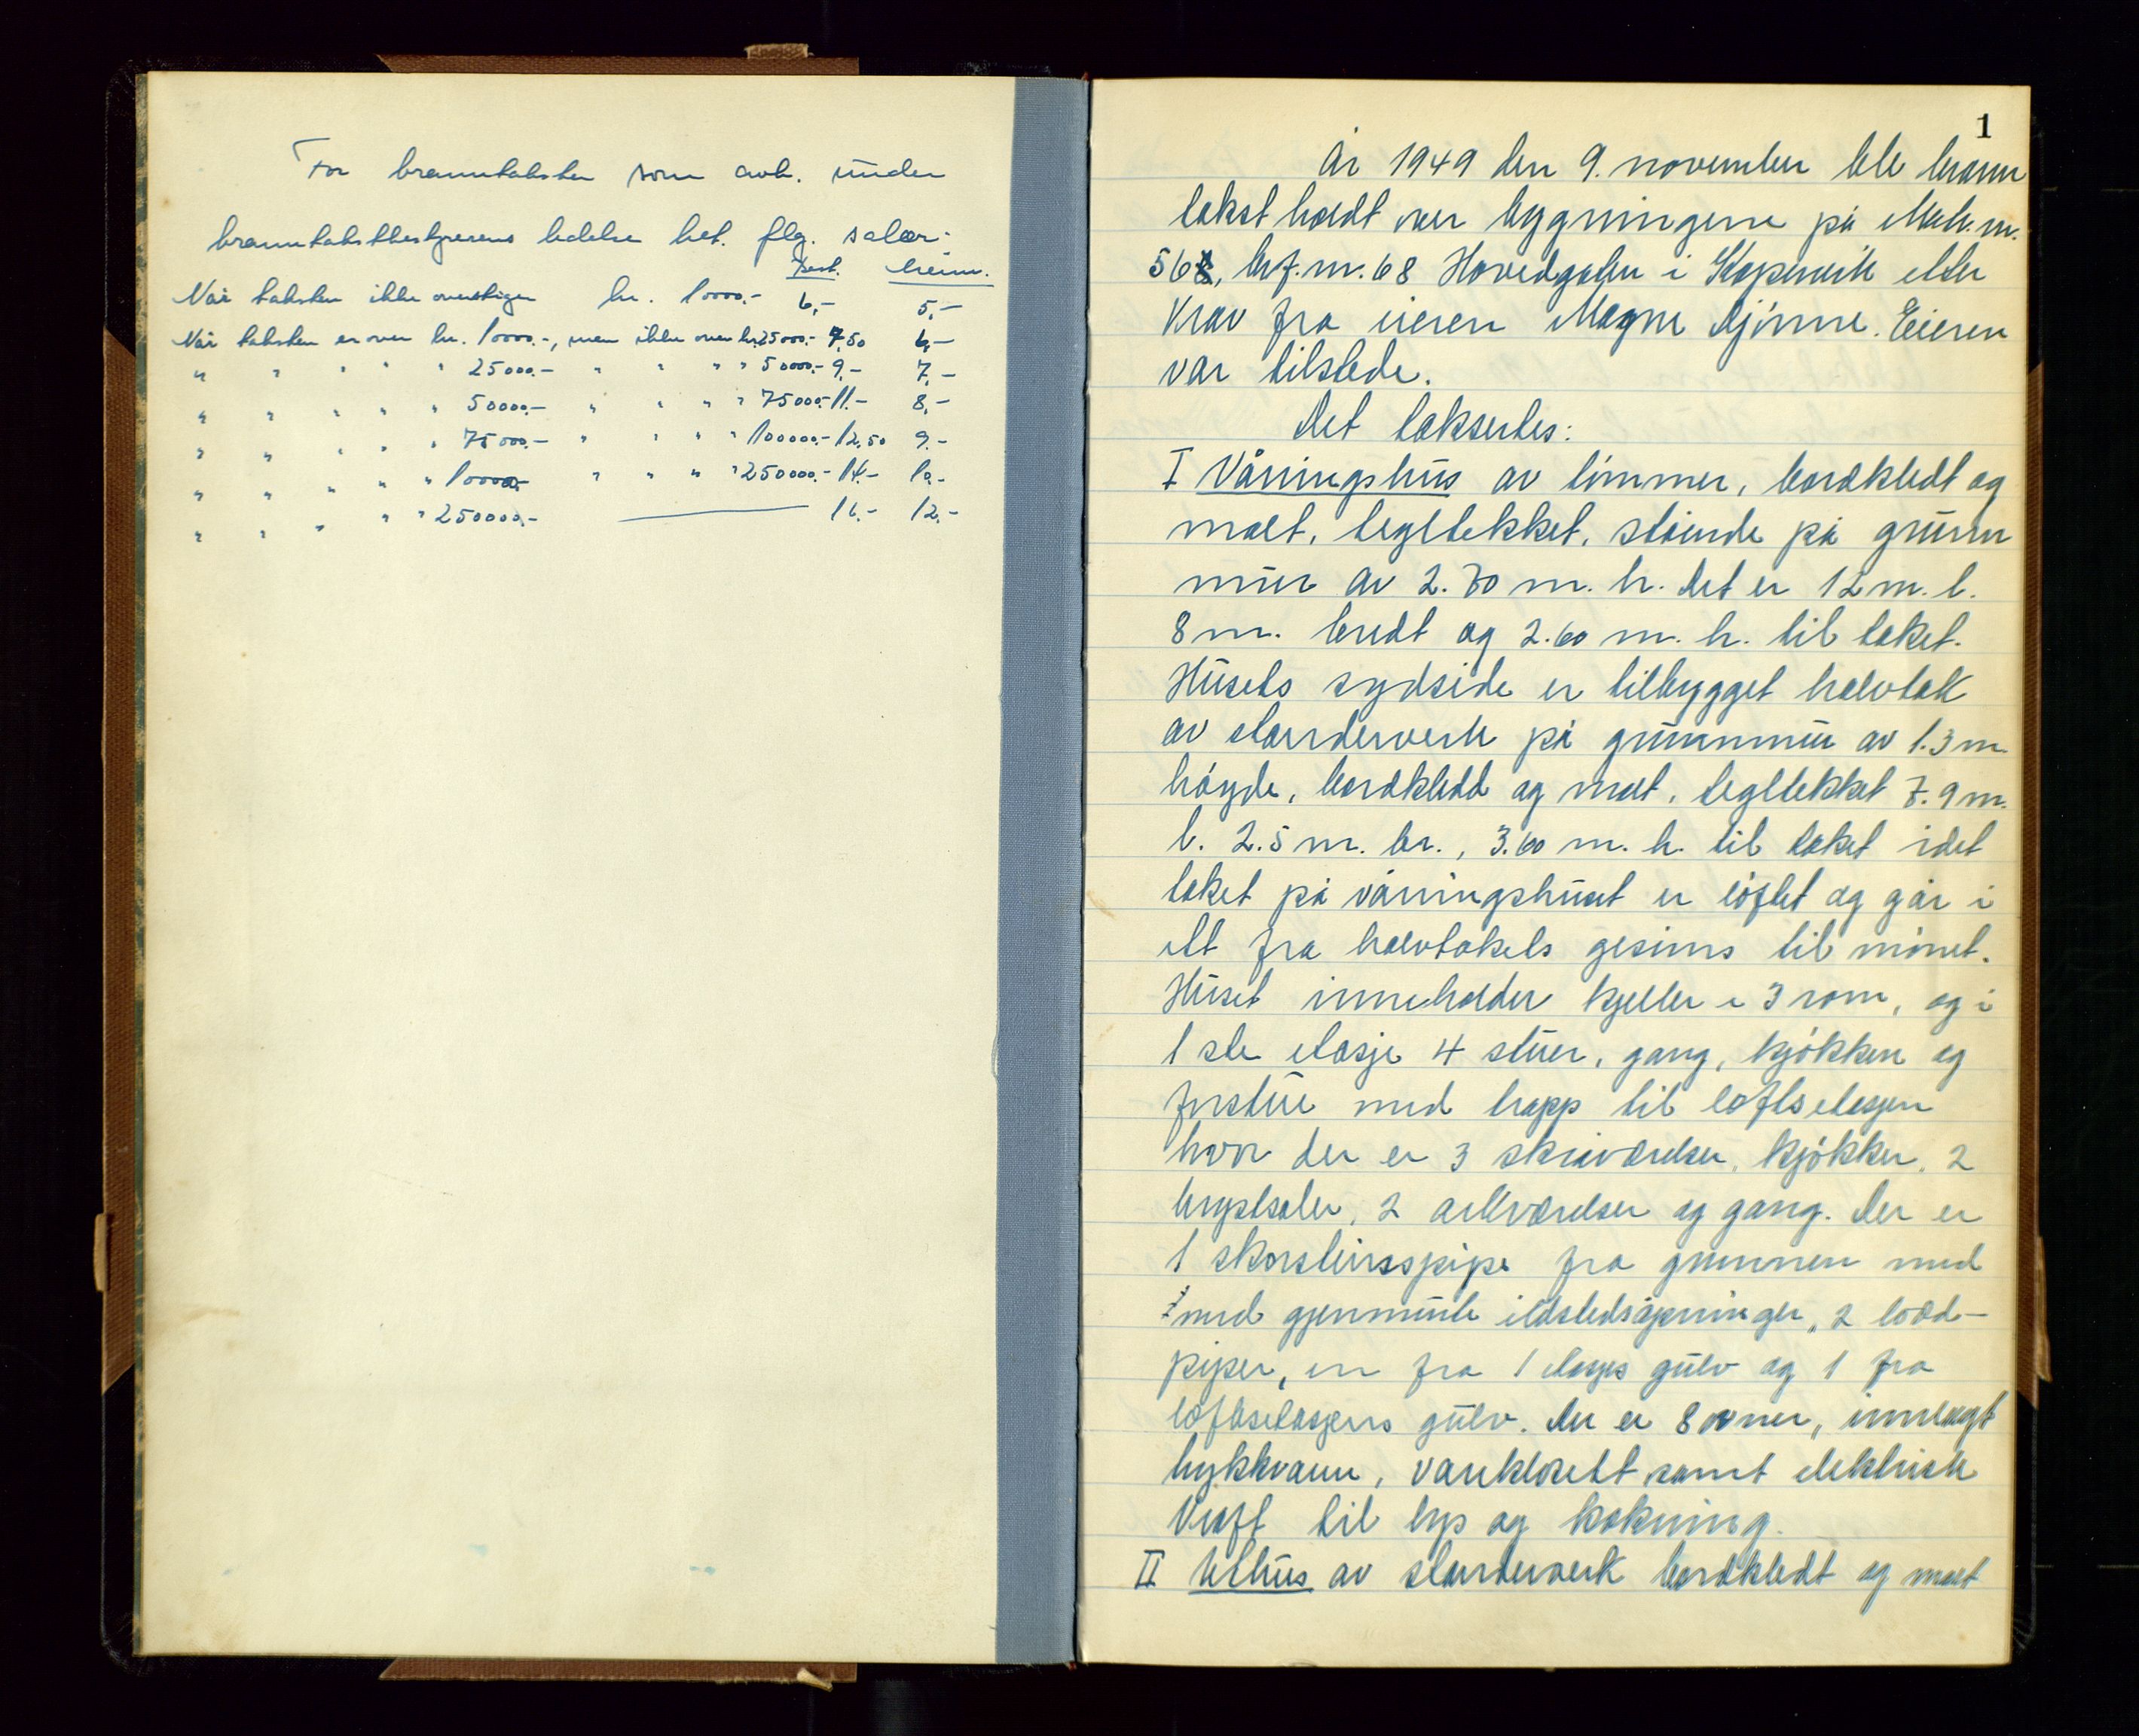 For branntakster som avh. under
branntakstbestyrerens ledelse bet. flg. salær:
Best. Menn.
Når taksten ikke overstiger kr. 10000.- 6,- 5,-
Når taksten er over kr. 10000.-, men ikke over kr. 25000.- 7,50 6,-
" " " " " 25000.- " " " " 50000.- 9,- 7,-
" " " " " 50000.- " " " " 75000.- 11.- 8,-
" " " " " 75000.- " " " " 100000.- 12,50 9.-
" " " " " 100000.- " " " " 250000.- 14.- 10.-
" " " " " 250000.- 16.- 12.-
1
År 1949 den 9. november ble brann
takst holdt over bygningene på Matr. nr.
56, br.f. nr. 68 Hovedgaten i Kopervik etter
krav fra eieren Magne. Eieren
var tilstede.
Det taksertes:
I Våningshus av tømmer, bordkledt og
malt, tegltekket, stående på grunn
mur av 2.70 m. h. Det er 12 m. l.
8 m. bredt og 2.60 m. h. til taket.
Husets sydside er tilbygget halvtak
av standerverk på grunnmur av 1.3 m
høyde, bordkledd og malt, tegltekket 7.9 m.
l. 2.5 m. br., 3.60 m. h. til taket idet
taket på våningshuset er løftet og går i
ett fra halvtakets gesims til mønet.
Huset inneholder kjeller i 3 rom, og i
1 ste etasje 4 stuer, gang, kjøkken og
forstue med trapp til loftsetasjen
hvor der er 3 skråværelser, kjøkken, 2
brystsaler, 2 arkværelser og gang. Der er
1 skorsteinspipe fra grunnen med
med gjenmurte ildstedsåpninger, 2 lodd-
piper, en fra 1 etasjes gulv og 1 fra
loftsetasjens gulv. Der er 8 ovner, innlagt
trykkvann, vannklosett samt elektrisk
kraft til lys og kokning.
II Uthus av standerverk bordkledt og malt